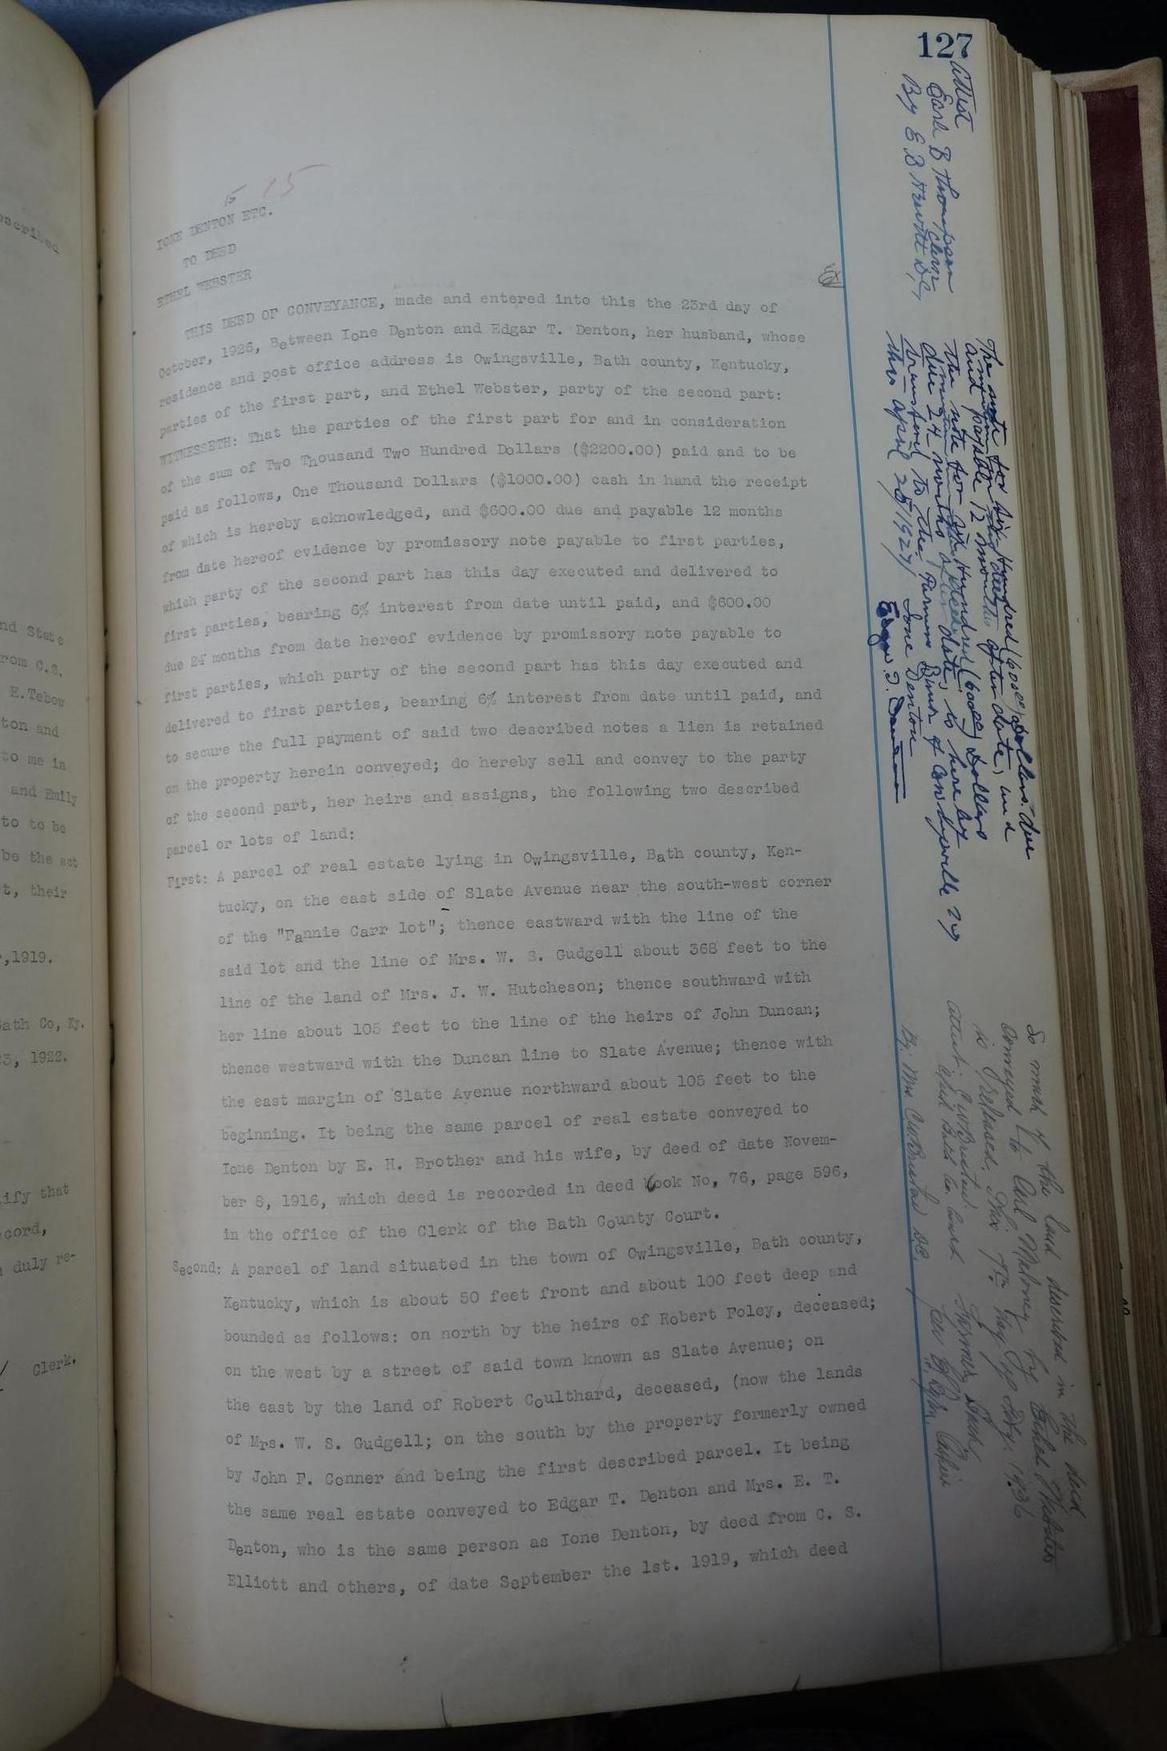 127
15 15
IONE DENTON ETC.
TO DEED
ETHEL WEBSTER
THIS DEED OF CONVEYANCE, made and entered into this the 23rd day of
October, 1926, Between Ione Denton and Edgar T. Denton, her husband, whose
residence and post office address is Owingsville, Bath county, Kentucky,
parties of the first part, and Ethel Webster, party of the second part:
WITNESSETH: That the parties of the first part for and in consideration
of the sum of Two Thousand Two Hundred Dollars ($2200.00) paid and to be
paid as follows, One Thousand Dollars ($1000.00) cash in hand the receipt
of which is hereby acknowledged, and $600.00 due and payable 12 months
from date hereof evidence by promissory note payable to first parties,
which party of the second part has this day executed and delivered to
first parties, bearing 6% interest from date until paid, and $600.00
due 24 months from date hereof evidence by promissory note payable to
first parties, which party of the second part has this day executed and
delivered to first parties, bearing 6% interest from date until paid, and
to secure the full payment of said two described notes a lien is retained
on the property herein conveyed; do hereby sell and convey to the party
of the second part, her heirs and assigns, the following two described
parcel or lots of land:
First: A parcel of real estate lying in Owingsville, Bath county, Ken-
tucky, on the east side of Slate Avenue near the south-west corner
of the "Fannie Carr lot"; thence eastward with the line of the
said lot and the line of Mrs. W. S. Gudgell about 368 feet to the
line of the land of Mrs. J. W. Hutcheson; thence southward with
her line about 105 feet to the line of the heirs of John Duncan;
thence westward with the Duncan line to Slate Avenue; thence with
the east margin of Slate Avenue northward about 105 feet to the
beginning. It being the same parcel of real estate conveyed to
Ione Denton by E. H. Brother and his wife, by deed of date Novem-
ber 8, 1916, which deed is recorded in deed book No, 76, page 596,
in the office of the Clerk of the Bath County Court.
Second: A parcel of land situated in the town of Owingsville, Bath county,
Kentucky, which is about 50 feet front and about 100 feet deep and
bounded as follows: on north by the heirs of Robert Foley, deceased;
on the west by a street of said town known as Slate Avenue; on
the east by the land of Robert Coulthard, deceased, (now the lands
of Mrs. W. S. Gudgell; on the south by the property formerly owned
by John F. Conner and being the first described parcel. It being
the same real estate conveyed to Edgar T. Denton and Mrs. E. T.
Denton, who is the same person as Ione Denton, by deed from C. S.
Elliott and others, of date September the 1st. 1919, which deed
Attest
Earl B Thompson
Clerk
By E B Hewitt D.C,
The note for six hundred (600.00) dollars due
and payable 12 months after date, and
the note for six hundred (600.00) Dollars
due 24 months after date, is hereby
to the Farmers Bank of Owingsville Ky
this April 25/1927/ Ione Denton
Edgar T. Denton
So much of the land described in the deed
conveyed to Carl Maloney by Ethel Webster
is released. This 7th day of 1936
Farmers Bank
Attest
By D.C.
Cashier
scribed
nd State
rom C.S.
E.Tebow
ton and
to me in
and Emily
to to be
be the act
t, their
,1919.
ath Co, Ky.
3, 1922.
ify that
cord,
duly re-
Clerk.